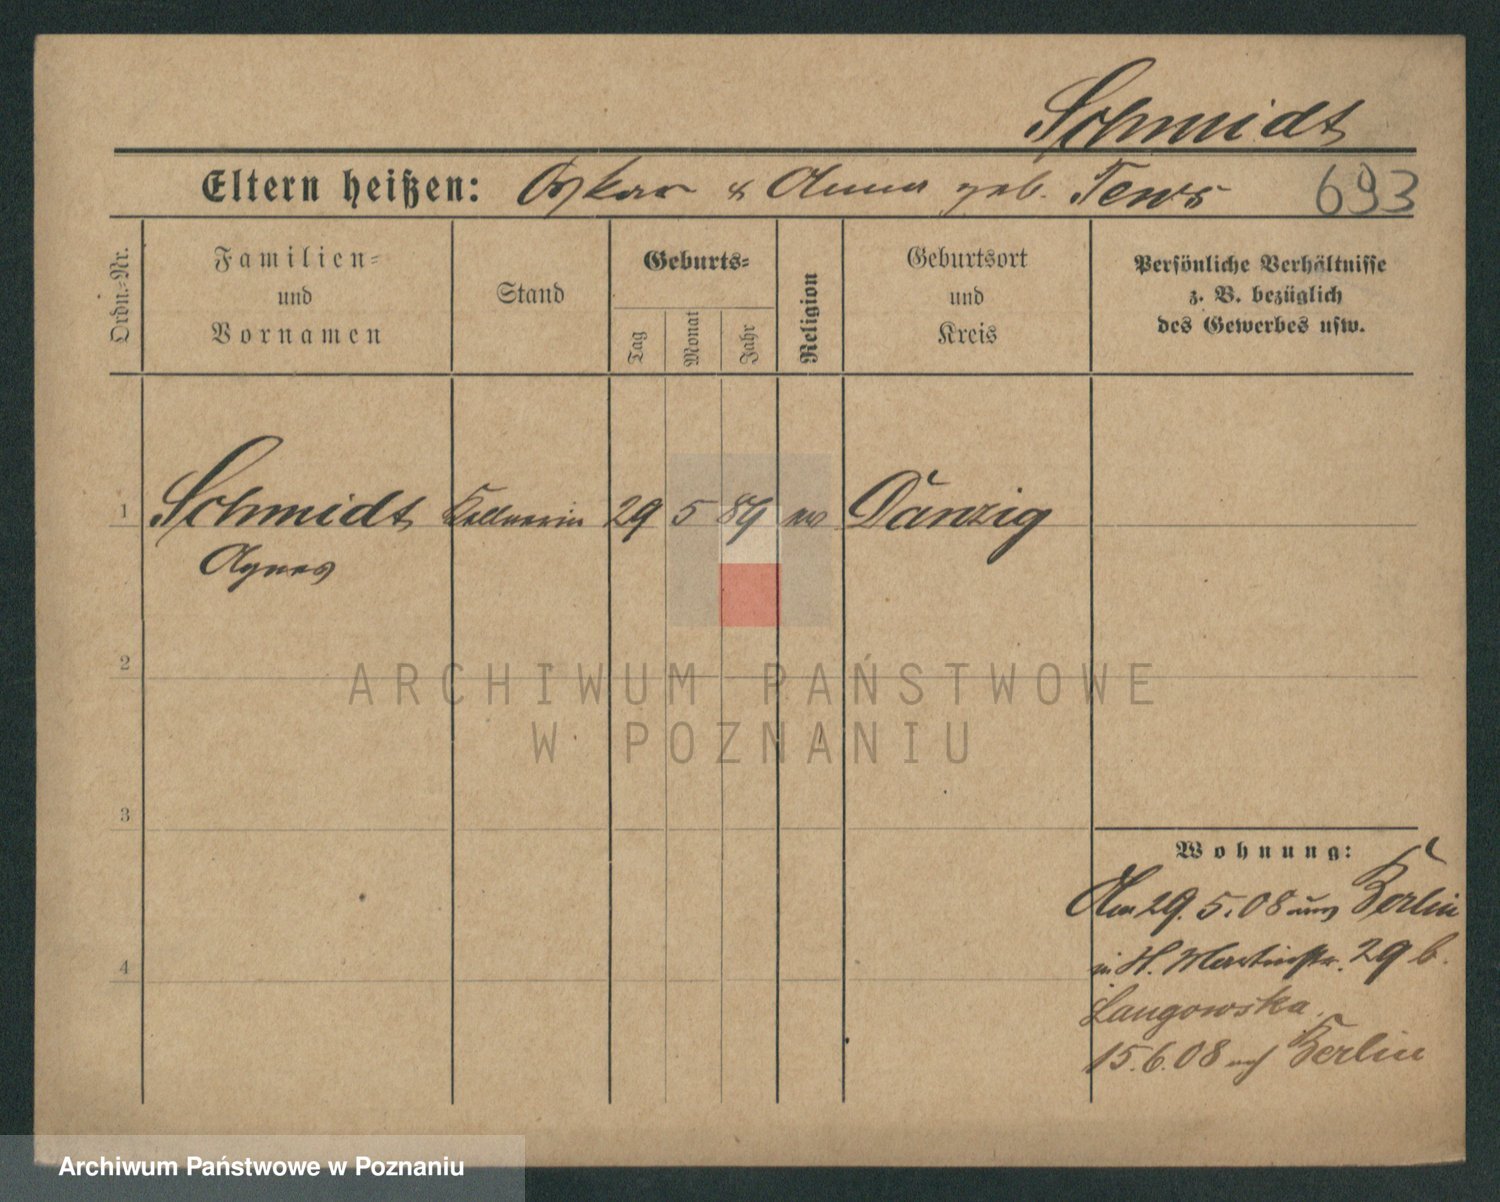 Schmidt
Eltern heißen: Oskar & Anna geb. Tews 693
Ordn.-Nr.
Familien-
und
Vornamen
Stand
Geburts-
Tag
Monat
Jahr
Religion
Geburtsort
und
Kreis
Persönliche Verhältnisse
z. B. bezüglich
des Gewerbes usw.
1 Schmidt Kellnerin 29 5 89 ev Danzig
Agnes
2
ARCHIWUM PAŃSTWOWE
W POZNANIU
3
Wohnung:
Am 29. 5. 08 aus Berlin
in St. Martinstr. 29 b.
Langowska.
15.6.08 nach Berlin
4
Archiwum Państwowe w Poznaniu